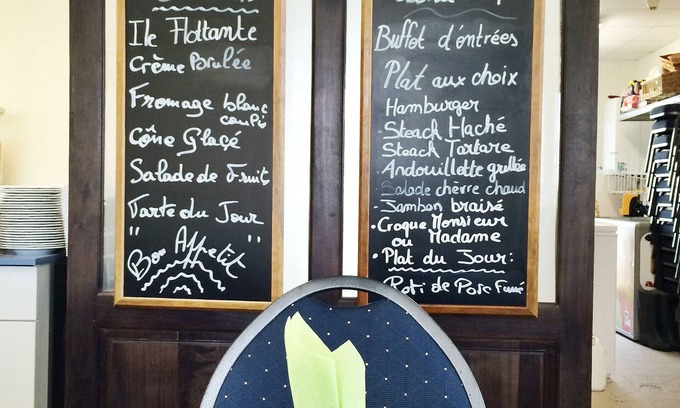 Ile Flottante
Crème Brulée
Fromage blanc
coulis
Cône Glaçé
Salade de Fruits
Tarte du Jour
"Bon Appetit"
Buffet d'éntrées
Plat aux choix
Hamburger
• Steack Haché
Steack Tartare
• Andouillette grillée
• Salade chèvre chaud
• Jambon braisé
• Croque Monsieur
ou Madame
• Plat du Jour:
Roti de Porc Fumé